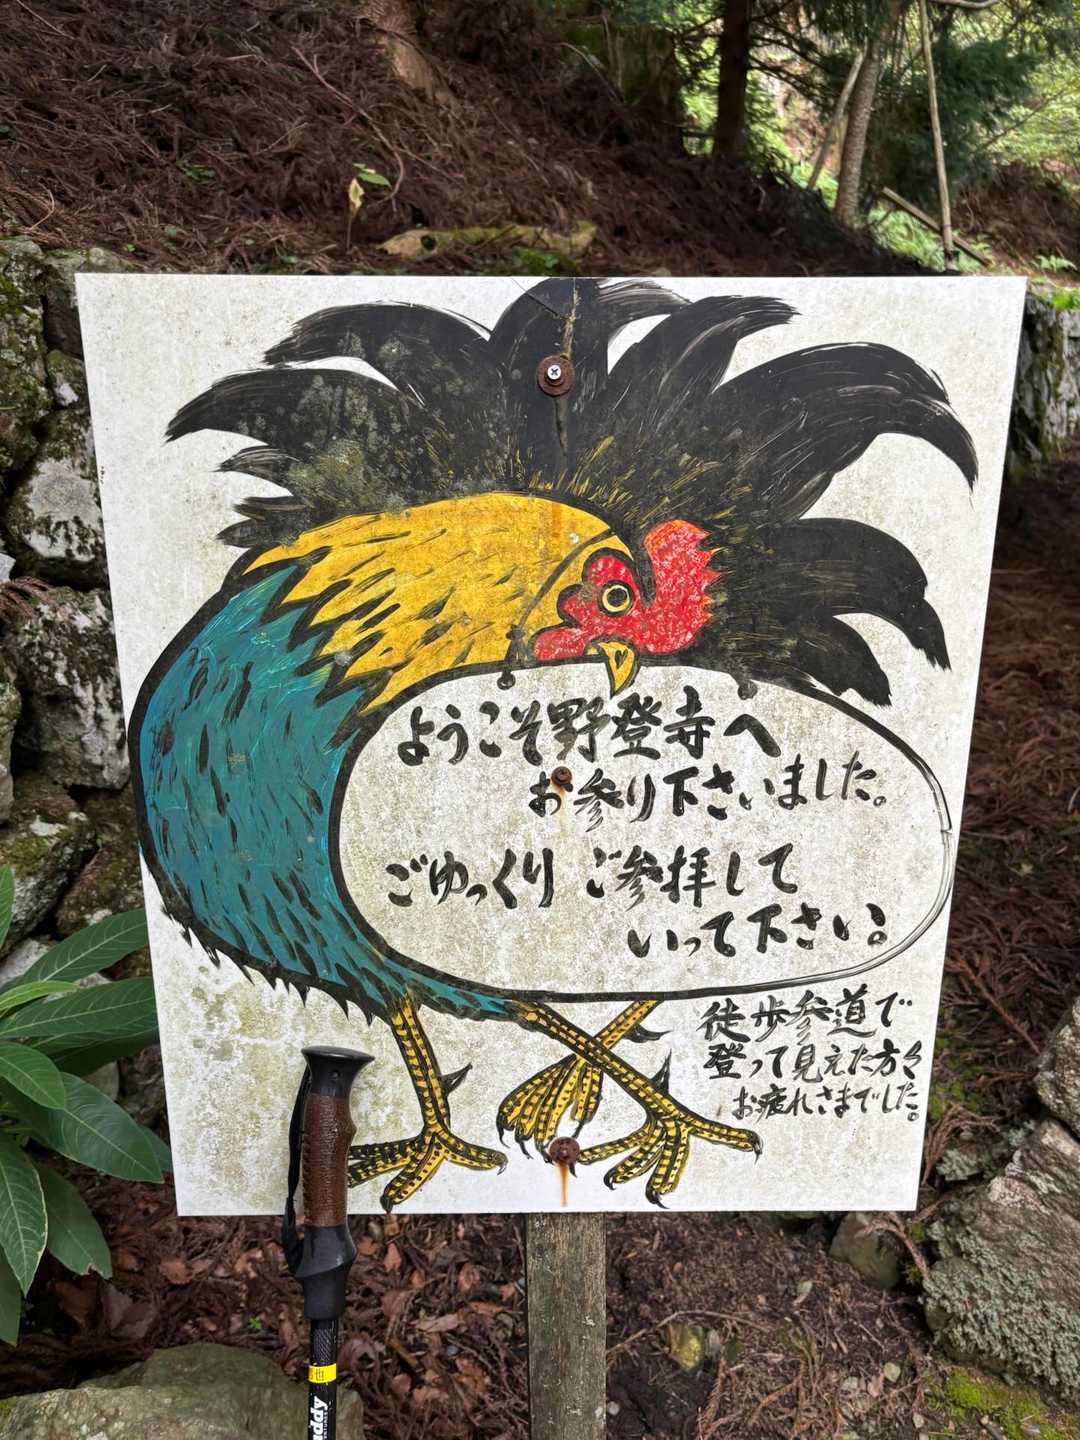 ようこそ野登寺へ
お参り下さいました。
ごゆっくりご参拝して
いって下さい。
徒歩参道で
登って見えた方々
お疲れさまでした。